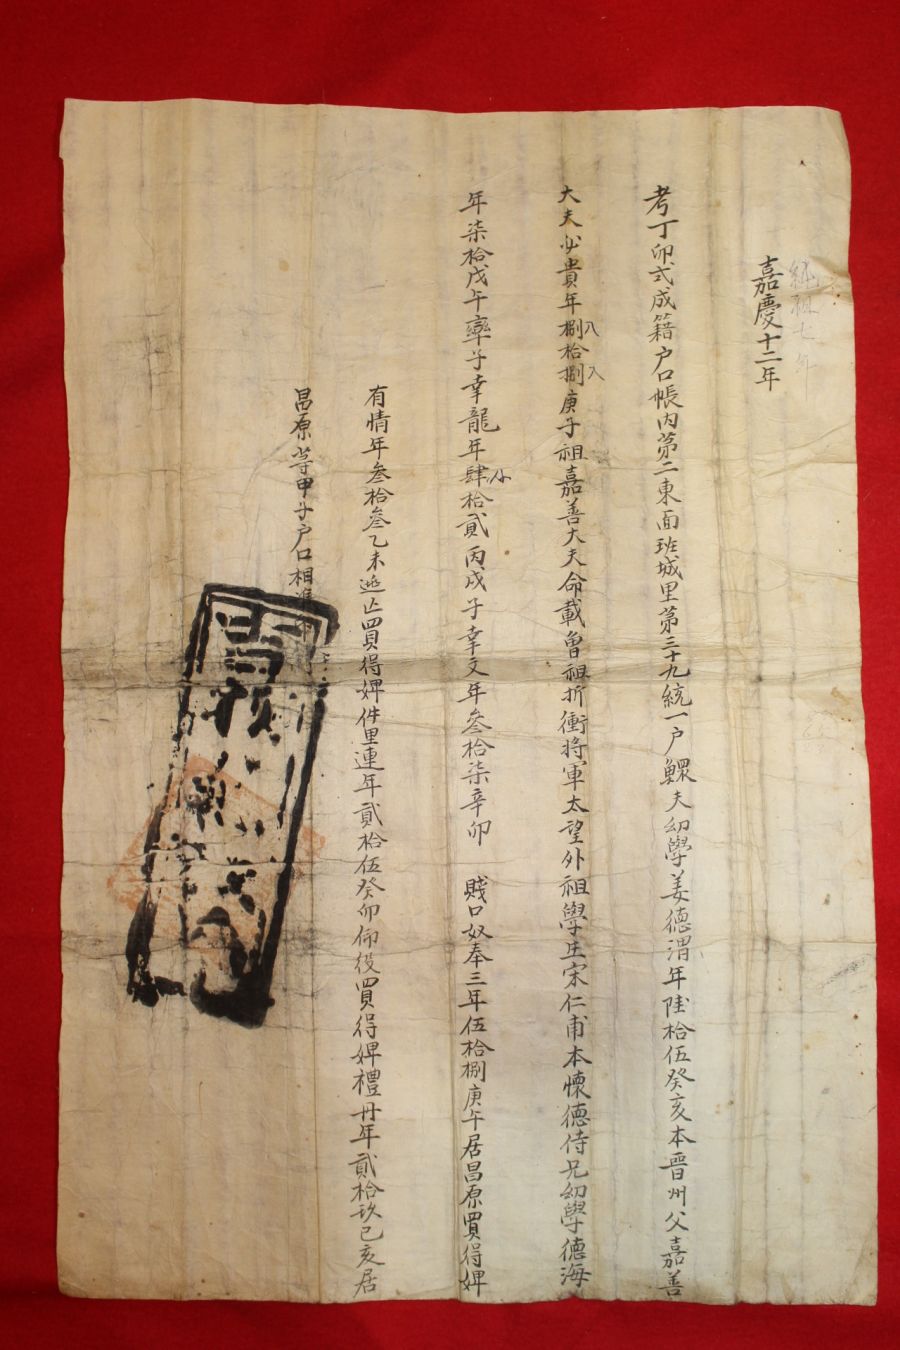 純祖七年
嘉慶十二年
考丁卯式成籍戶口帳內第二東面班城里第三十九統一戶鰥夫幼學姜德渭年陸拾伍癸亥本晋州父嘉善
大夫必貴年捌拾捌庚子祖嘉善大夫命載曾祖折衝將軍太望外祖學生宋仁甫本懷德侍兄幼學德海
年柒拾戊午率子幸龍年肆拾貳丙戌子幸文年叄拾柒辛卯 賤口奴奉三年伍拾捌庚午居昌原買得婢
有情年叄拾叄乙未逃亡買得婢件里連年貳拾伍癸卯仰役買得婢禮丹年貳拾玖己亥居
昌原等甲子戶口相準